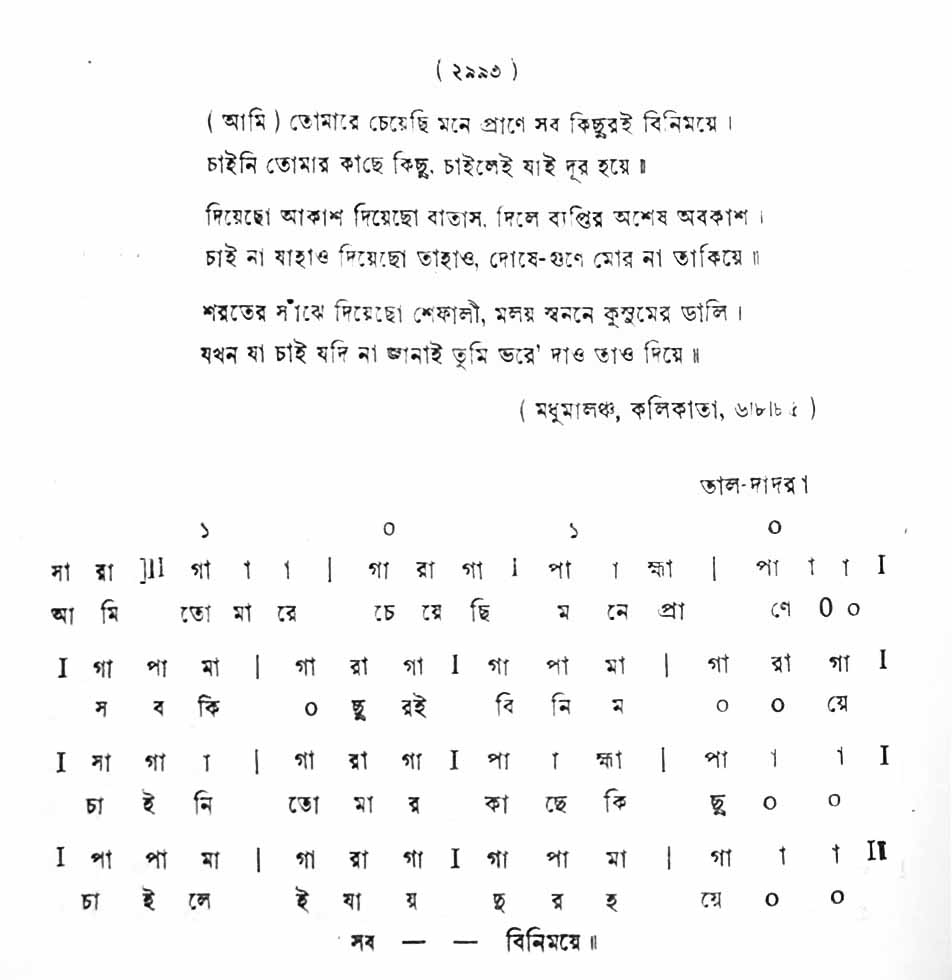 ( ২৯৯৩ )
( আমি ) তোমারে চেয়েছি মনে প্রাণে সব কিছুরই বিনিময়ে ।
চাইনি তোমার কাছে কিছু, চাইলেই যাই দূর হয়ে ॥
দিয়েছো আকাশ দিয়েছো বাতাস, দিলে ব্যপ্তির অশেষ অবকাশ ।
চাই না যাহাও দিয়েছো তাহাও, দোষে-গুণে মোর না তাকিয়ে ॥
শরতের সাঁঝে দিয়েছো শেফালী, মলয় স্বননে কুসুমের ডালি ।
যখন যা চাই যদি না জানাই তুমি ভরে' দাও তাও দিয়ে ॥
( মধুমালঞ্চ, কলিকাতা, ৬।৮।৮৫ )
তাল-দাদরা
১ ০ ১ ০
সা রা ]III গা া া | গা রা গা I পা া হ্মা | পা া া I
আ মি তো মা রে চে য়ে ছি ম নে প্রা ণে 0 ০
I গা পা মা | গা রা গা I গা পা মা | গা রা গা I
স ব কি ০ ছু রই বি নি ম ০ ০ য়ে
I সা গা া | গা রা গা I পা া হ্মা | পা া া I
চা ই নি তো মা র কা ছে কি ছু ০ ০
I পা পা মা | গা রা গা I গা পা মা | গা া া II
চা ই লে ই যা য় দু র হ য়ে ০ ০
সব — — বিনিময়ে ॥